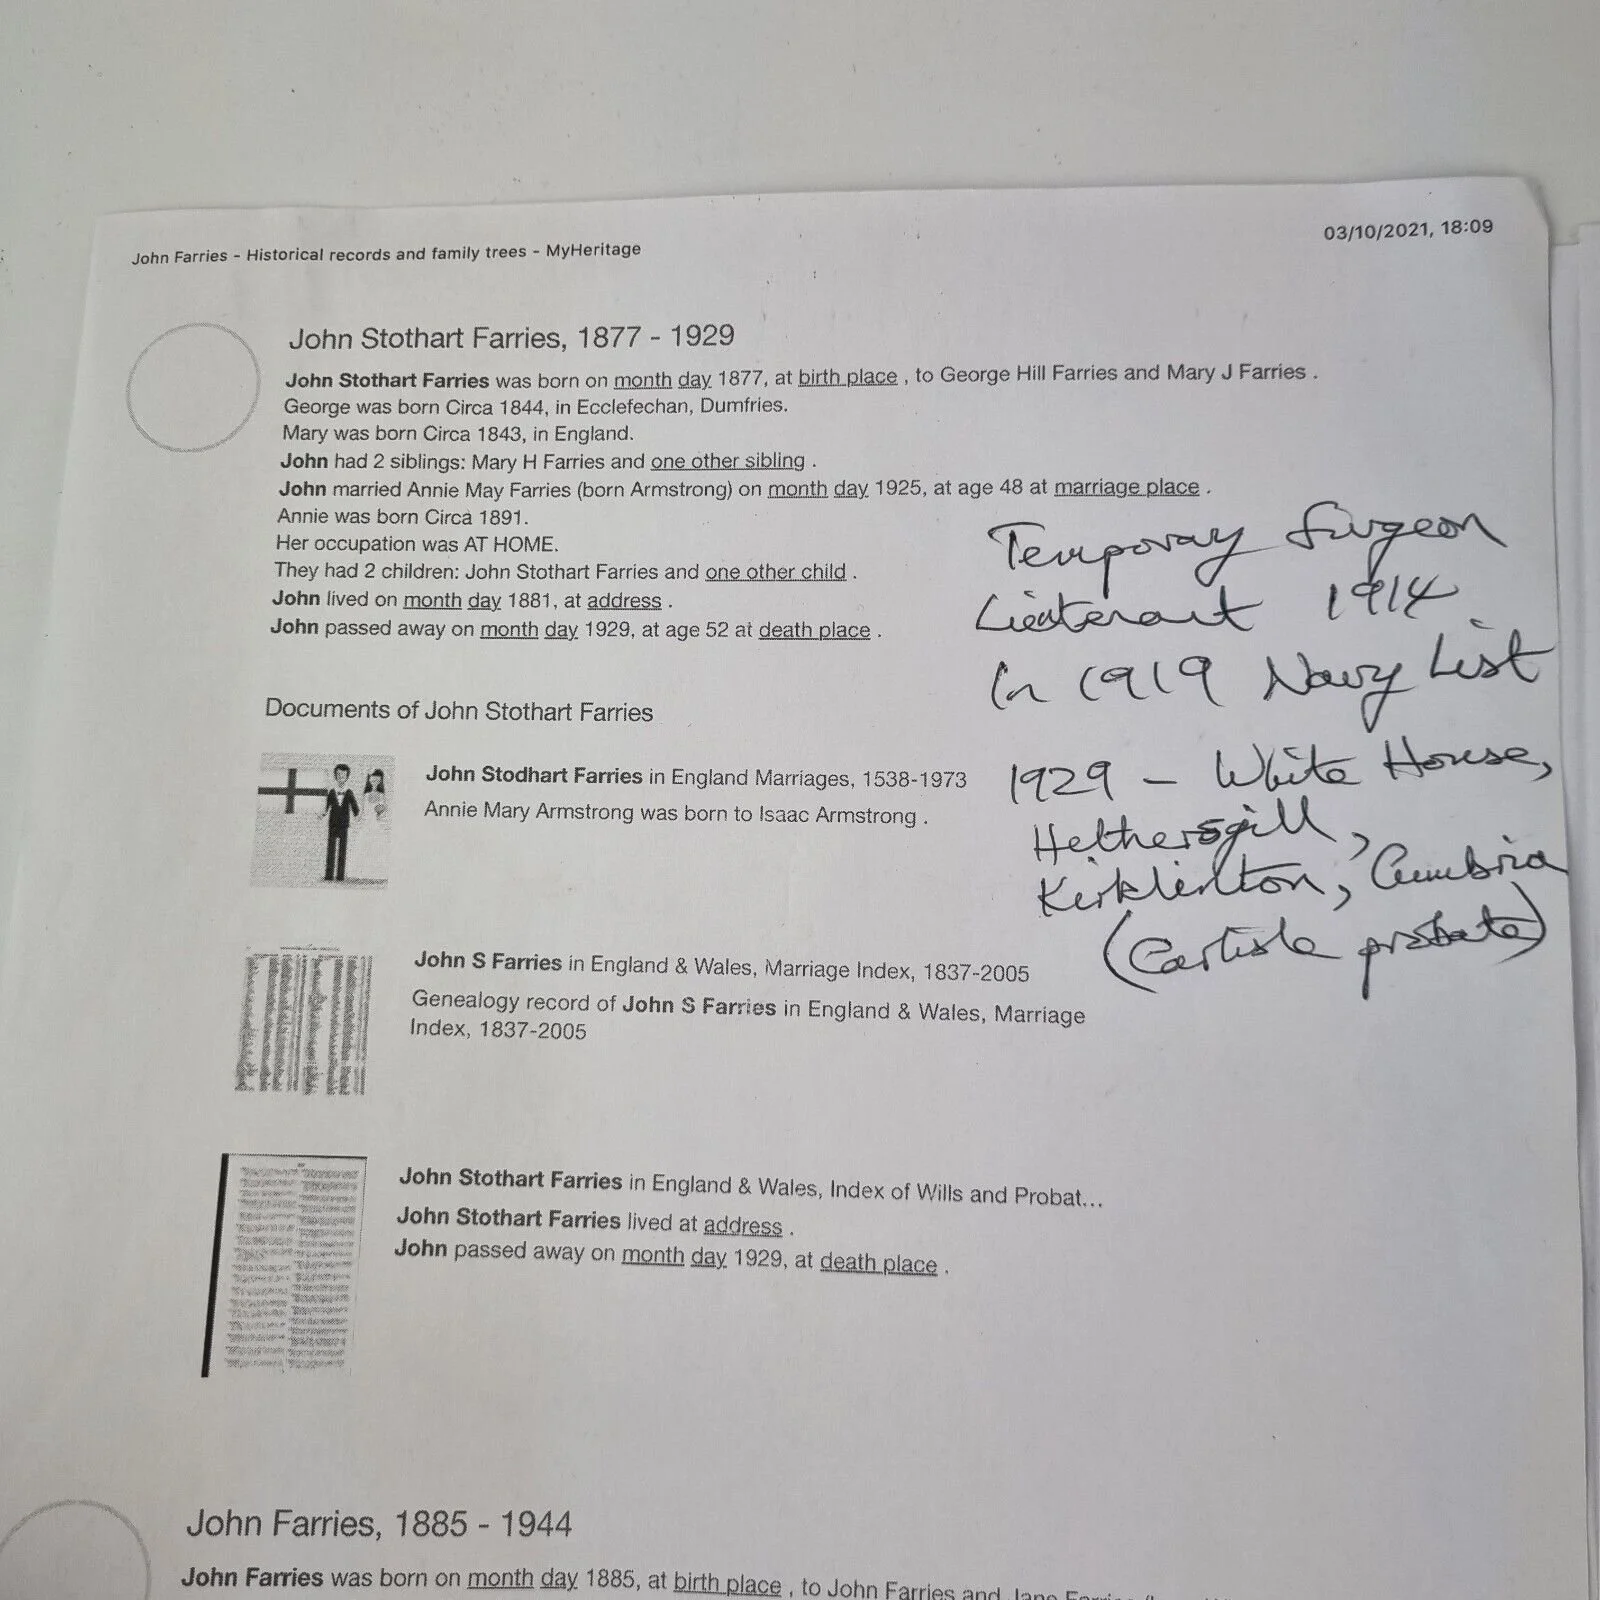 John Farries - Historical records and family trees - MyHeritage
03/10/2021, 18:09
John Stothart Farries, 1877 - 1929
John Stothart Farries was born on month day 1877, at birth place , to George Hill Farries and Mary J Farries .
George was born Circa 1844, in Ecclefechan, Dumfries.
Mary was born Circa 1843, in England.
John had 2 siblings: Mary H Farries and one other sibling .
John married Annie May Farries (born Armstrong) on month day 1925, at age 48 at marriage place .
Annie was born Circa 1891.
Her occupation was AT HOME.
They had 2 children: John Stothart Farries and one other child .
John lived on month day 1881, at address .
John passed away on month day 1929, at age 52 at death place .
Temporary Surgeon
Lieutenant 1914
In 1919 Navy List
1929 - White House,
Hethersgill,
Kirklinton, Cumbria
(Carlisle probate)
Documents of John Stothart Farries
John Stodhart Farries in England Marriages, 1538-1973
Annie Mary Armstrong was born to Isaac Armstrong .
John S Farries in England & Wales, Marriage Index, 1837-2005
Genealogy record of John S Farries in England & Wales, Marriage
Index, 1837-2005
John Stothart Farries in England & Wales, Index of Wills and Probat...
John Stothart Farries lived at address .
John passed away on month day 1929, at death place .
John Farries, 1885 - 1944
John Farries was born on month day 1885, at birth place , to John Farries and Jane